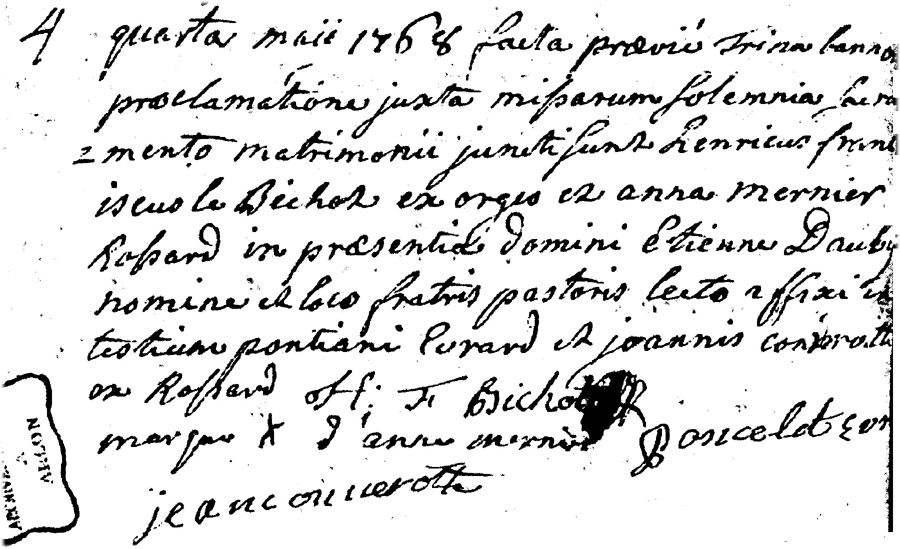 4 quarta maii 1768 facta prœviè trina banno
proclamatione juxta missarum solemnia sacra
=mento matrimonii juncti sunt henricus franc
iscus le Bichot ex orgeo et anna mernier
Rossard in præsentia domini Etienne Dauby
nomine et loco fratris pastoris lecto affixi
testium pontiani Evrard et joannis
ex Rossard F Bichot
marque X d'anne mernier Poncelet Evr
jean connerotte
ARCHIVES
A
ARLON